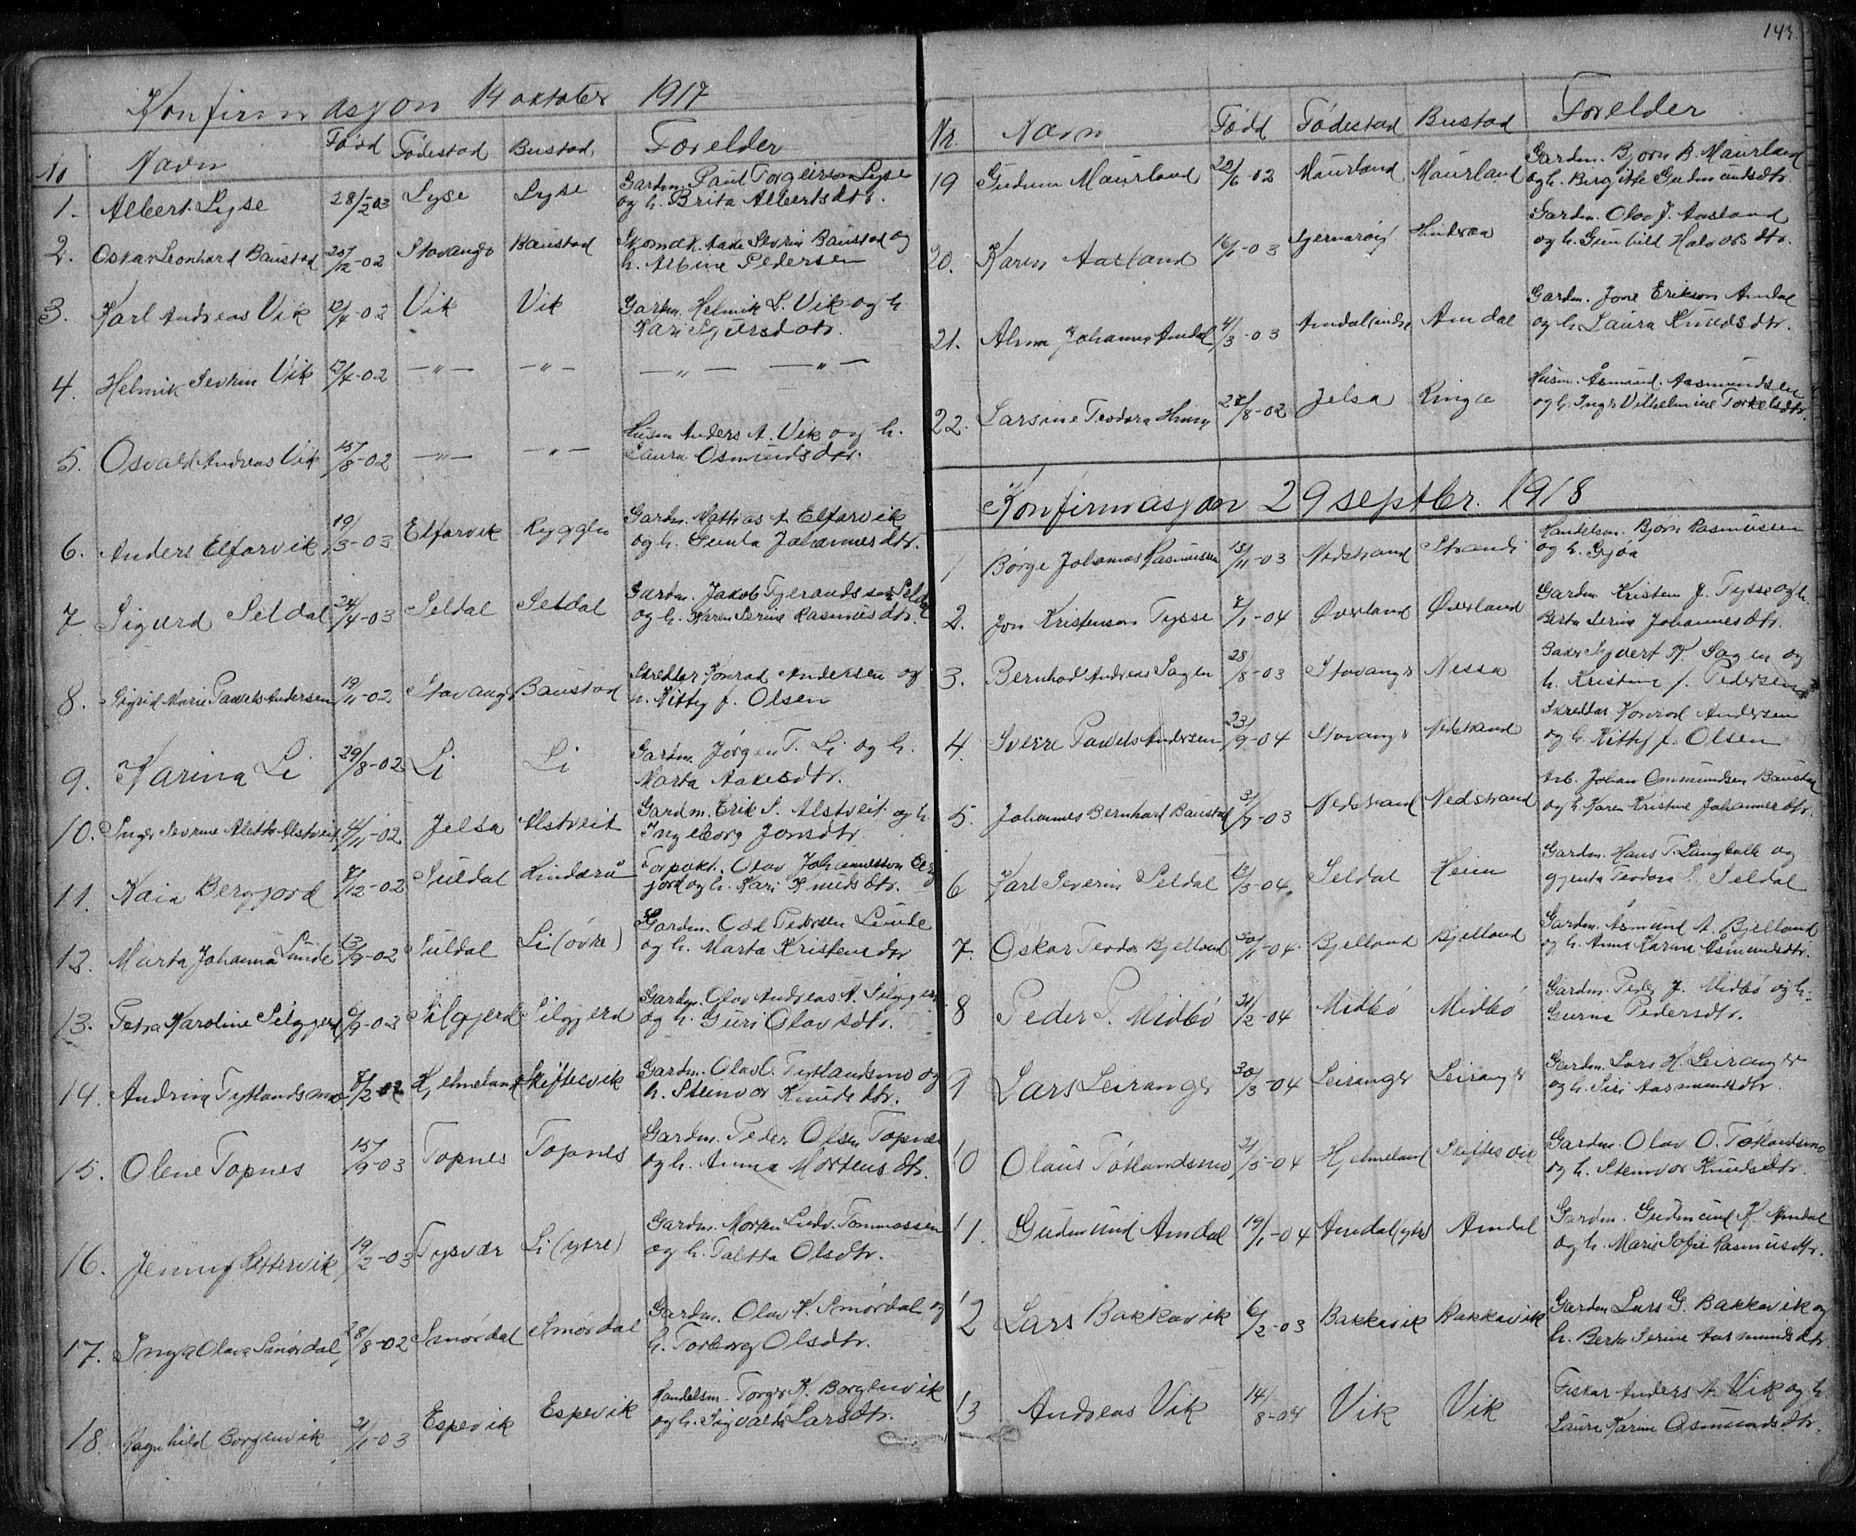 Konfirmasjon 14 oktober 1917
No Navn Fødd Fødestad Bustad Forelder
1. Albert Lyse 28/2-03 Lyse Lyse Gardm. Paul Torgeirsen Lyse
og h. Brita Albertsdtr.
2. Oskar Leonhard Baustad 20/12-02 Stavanger Baustad Aade Severin Baustad og
h. Albine Pedersen
3. Karl Andreas Vik 12/4-02 Vik Vik Gardm. Helmik L. Vik og h.
Kari Sjursdotr.
4. Helmik Severin Vik 12/4-02 —"— —"— —"— —"—
5. Osvald Andreas Vik 15/8-02 —"— —"— Husm Anders A. Vik og h.
Laura Osmundsdtr.
6. Anders Elfarvik 19/3-03 Elfarvik Gardm. Mathias A Elfarvik
og h. Gunla Johannesdtr.
7. Sigurd Seldal 24/4-03 Seldal Seldal Gardm. Jakob Tjerandssen Seldal
og h. Karen Serine Rasmusdtr.
8. Sigrid Marie Pauels Andersen 19/11-02 Stavang Baustad Skreddar Konrad Andersen og
h. Kitty f. Olsen
9. Karina Li 29/8-02 Li Li Gardm. Jørgen T. Li og h.
Marta Aanesdtr.
10. Inger Severine Alette Alstveit 4/11-02 Jelsa Alstveit Gardm. Erik S. Alstveit og h.
Ingeborg Jonsdtr.
11. Kaia Bergjord 7/12-02 Suldal Hinderå Forpakt. Olav Johannesson Berg
jord og h. Kari Knudsdtr.
12. Marta Johanna Lunde 13/9-02 Suldal Li (øvre) Gardm. Odd Pedersen Lunde
og h. Marta Kristensdtr
13. Petra Karoline Selgjerd 6/9-03 Selgjerd Selgjerd Gardm. Olav Andreas A. Selgjerd
og h. Guri Olavsdtr.
14. Andrina Tytlandsmo 8/2-02 Hjelmeland Skiftesvik Gardm. Olav O. Tytlandsmo og
h. Steinvor Knudsdtr.
15. Olene Topnes 15/9-03 Topnes Topnes Gardm. Peder Olsen Topnes
og h. Anna Mortensdtr.
16. Jenny 19/2-03 Tysvær Li (ytre) Gardm. Morten Ludv. Tommassen
og h. Taletta Olsdtr.
17. Inga Olava Smørdal 28/8-02 Smørdal Smørdal Gardm. Olav K. Smørdal og
h. Torborg Olsdtr.
18. Ragnhild Borgenvik 21/1-03 Espevik Espevik Handelsm. Torger K. Borgenvik
og h. Sigvalda Larsdtr.
143
Nr. Navn Fødd Fødestad Bustad Forelder
19 Gudrun Maurland 22/6-02 Maurland Maurland Gardm. Bjorn B. Maurland
og h. Birgitte Gudmundsdtr.
20. Karen Aasland 16/1-03 Sjernarøy Hinderaa Gardm. Olav J. Aasland
og h. Gunhild Halvorsdtr.
21. Alma Johanne Amdal 4/3-03 Amdal (indre) Amdal Gardm. Jone Erikson Amdal
og h Laura Knudsdtr.
22. Larsine Teodora 27/8-02 Jelsa Ringa Husm. Åsmund Aasmundsen
og h. Inger Vilhelmine Torkelsdtr.
Konfirmasjon 29 septbr. 1918
1 Børge Johannes Rasmussen 13/11-03 Nedstrand Strand Handelsm. Bjørn Rasmussen
og h. Gjøa
2. Jon Kristenson Tysse 7/1-04 Øverland Øverland Gardm Kristen J. Tysse og h.
Berta Serine Johannesdtr.
3. Bernhard Andreas Sagen 28/8-03 Stavanger Nessa Baker Syvert K. Sagen og
h. Kristine f. Pedersen
4. Sverre Pauels Andersen 23/9-04 Stavanger Nedstrand Skreddar Konrad Andersen
og h. Kitty f. Olsen
5. Johannes Bernhard Baustad 31/7-03 Nedstrand Nedstrand Arb. Johan Ommundsen Baustad
og h. Karen Kristine Johannesdtr.
6 Karl Severin Seldal 12/3-04 Seldal Heim Gardm. Hans T. Langballe og
gjenta Teodora S. Seldal
7. Oskar Teodor Bjelland 30/1-04 Bjelland Bjelland Gardm. Asmund A. Bjelland
og h. Anne Karine Asmundsdtr.
8 Peder P. Midbø 21/2-04 Midbø Midbø Gardm. Peder J. Midbø og h.
Gurina Pedersdtr.
9 Lars Leiranger 30/3-04 Leiranger Leiranger Gardm. Lars H. Leiranger
og h. Siri Aasmundsdtr.
10 Olaus Tøtlandsmo 21/5-04 Hjelmeland Skiftesvik Gardm. Olav O. Tøtlandsmo
og h. Steinvor Knudsdtr.
11. Gudmund Amdal 19/1-04 Amdal (ytre) Amdal Gardm. Gudmund K. Amdal
og h. Marie Sofie Rasmusdtr.
12 Lars Bakkavik 6/2-03 Bakkavik Bakkavik Gardm Lars G. Bakkavik og
h. Berta Serine Aasmundsdtr
13 Andreas Vik 14/8-04 Vik Vik Fiskar Anders A. Vik og h
Laura Karine Osmundsdtr.